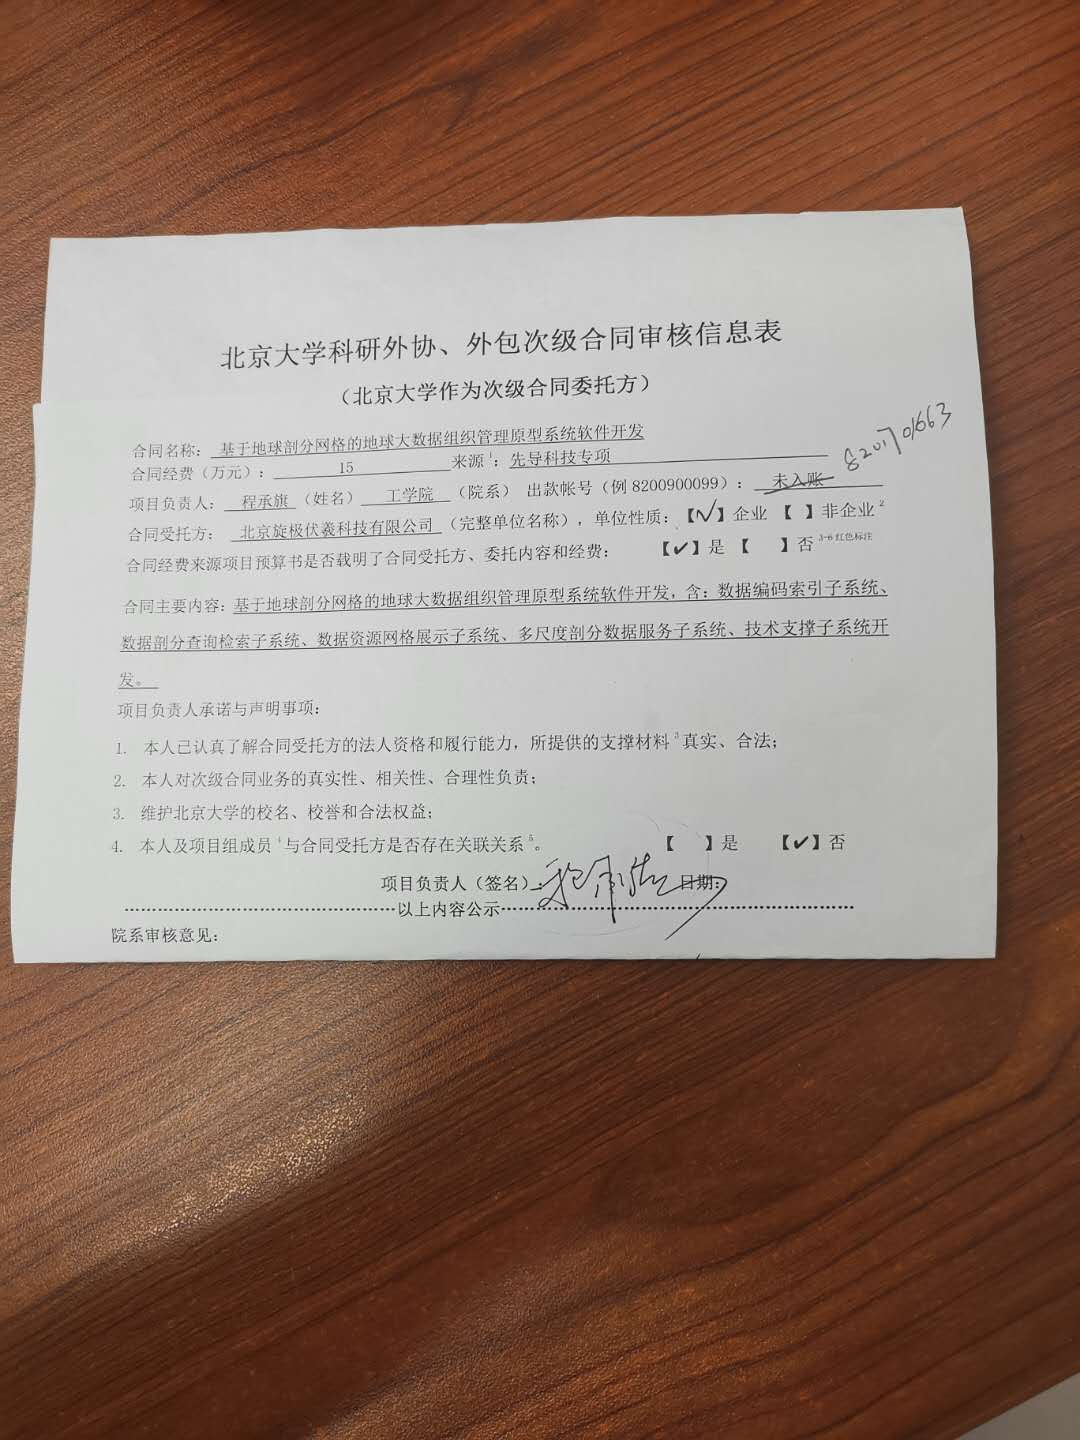 北京大学科研外协、外包次级合同审核信息表
（北京大学作为次级合同委托方）
合同名称：基于地球剖分网格的地球大数据组织管理原型系统软件开发
合同经费（万元）：15 来源1：先导科技专项
8201701663
项目负责人：程承旗（姓名）工学院（院系） 出款帐号（例8200900099）：未入账
合同受托方：北京旋极伏羲科技有限公司（完整单位名称），单位性质：【√】企业【 】非企业2
合同经费来源项目预算书是否载明了合同受托方、委托内容和经费： 【✔】是【 】否 3-6红色标注
合同主要内容：基于地球剖分网格的地球大数据组织管理原型系统软件开发，含：数据编码索引子系统、
数据剖分查询检索子系统、数据资源网格展示子系统、多尺度剖分数据服务子系统、技术支撑子系统开
发。
项目负责人承诺与声明事项：
1. 本人已认真了解合同受托方的法人资格和履行能力，所提供的支撑材料3真实、合法；
2. 本人对次级合同业务的真实性、相关性、合理性负责；
3. 维护北京大学的校名、校誉和合法权益；
4. 本人及项目组成员4与合同受托方是否存在关联关系5。 【 】是 【✔】否
项目负责人（签名）：程承旗 日期：
以上内容公示
院系审核意见：